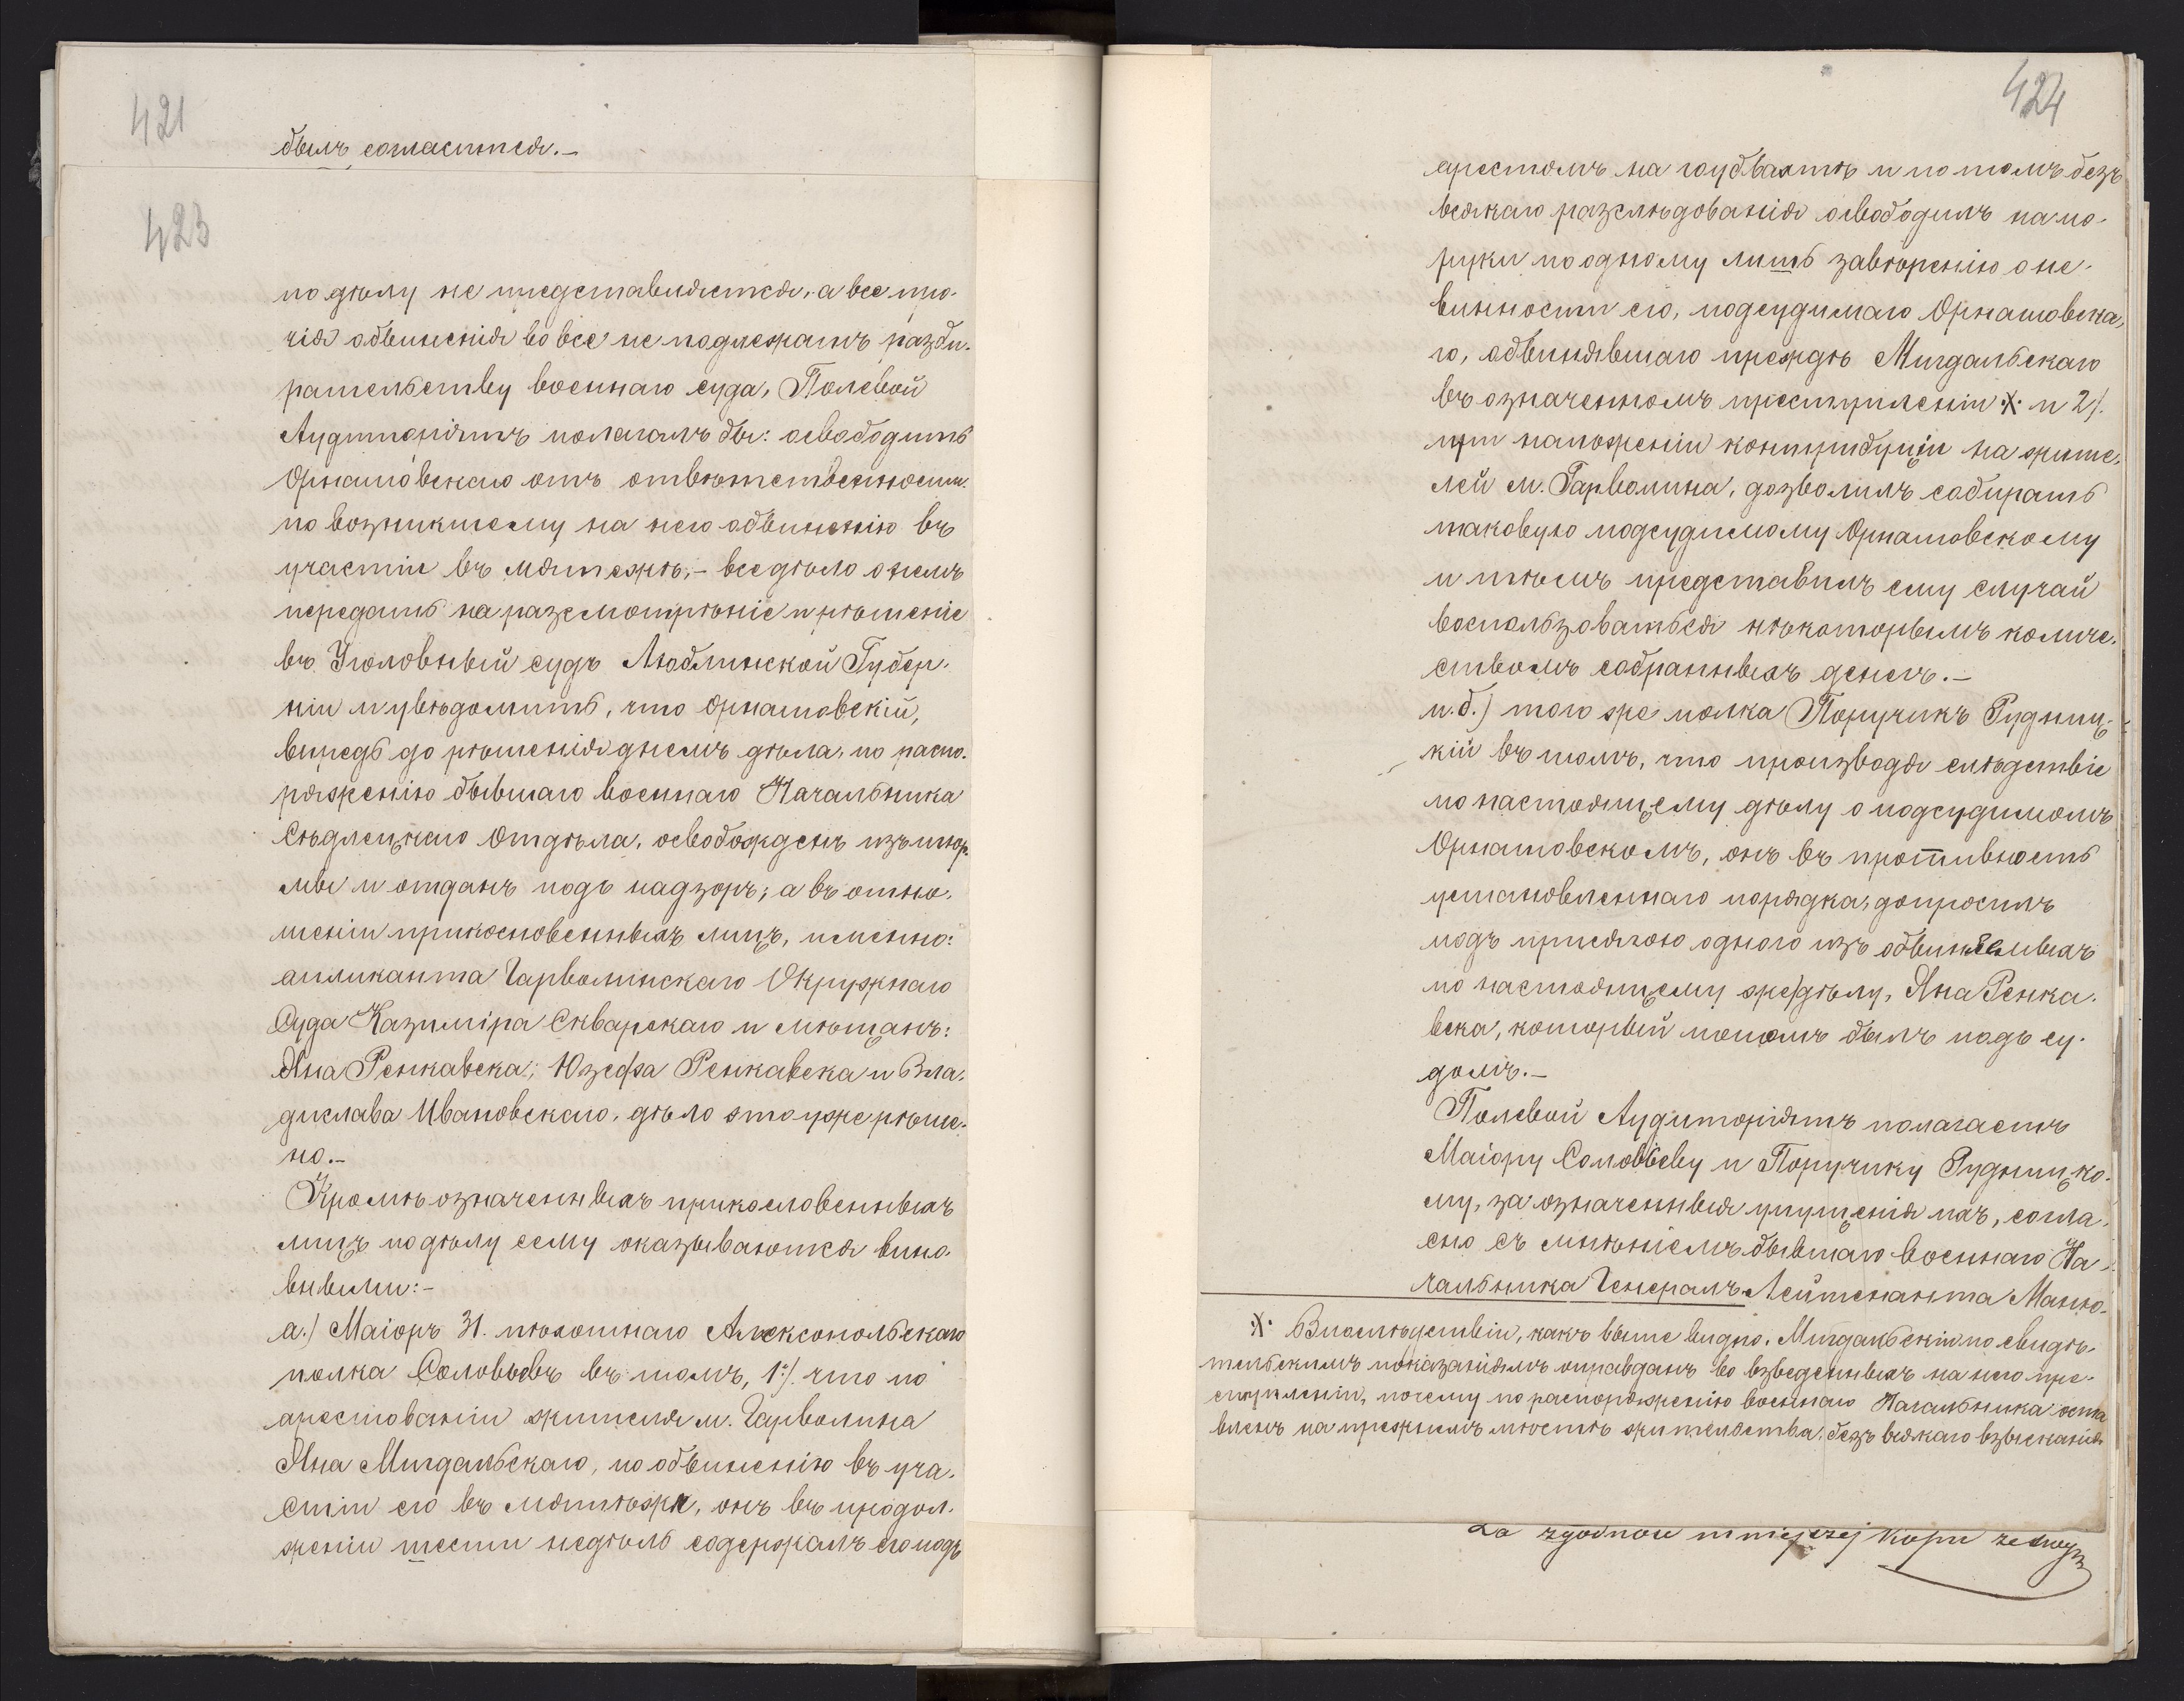 421
былъ согласится.–
423
по дѣлу не представляется, а все про-
чія обвиненія вовсе не подлежатъ разби-
рательству военнаго суда, Полевой
Аудиторіятъ полагалъ бы: освободить
Орнатовскаго отъ отвѣтственности
по возникшему на него обвиненію въ
участіи въ мятежѣ,– все дѣло о немъ
передать на разсмотрѣніе и рѣшеніе
въ Уголовный судъ Люблинской Губер-
ніи и увѣдомить, что Орнатовскій,
впредь до рѣшенія о немъ дѣла, по распо-
ряженію бывшаго военнаго Начальника
Сѣдлецкаго Отдѣла, освобожденъ изъ тюр-
мы и отданъ подъ надзоръ; а въ отно-
шеніи прикосновенныхъ лицъ, именно:
апликанта Гарволинскаго Окружнаго
Суда Казиміра Скварскаго и мѣщанъ:
Яна Ренкавека, Юзефа Ренкавека и Вла-
дислава Ивановскаго, дѣло это уже рѣше-
но.–
Кромѣ означенныхъ прикосновенныхъ
лицъ по дѣлу сему оказываются вино-
вными:–
а.) Маіоръ 31. пѣхотнаго Алексопольскаго
полка Соловьевъ въ томъ, 1./. что по
арестованіи жителя м. Гарволина
Яна Мигдальскаго, по обвиненію въ уча-
стіи его въ мятежѣ, онъ въ продол-
женіи шести недѣль содержалъ его подъ
424
арестомъ на гаубвахтѣ и потомъ безъ
всякаго разслѣдованія освободилъ на по-
руки по одному лишь завѣренію о не-
винности его, подсудимаго Орнатовска-
го, обвинявшаго прежде Мигдальскаго
въ означенномъ преступленіи ·X· и 2/.
при наложеніи контрибуціи на жите-
лей м. Гарволина, дозволилъ собирать
таковую подсудимому Орнатовскому
и тѣмъ представилъ ему случай
воспользоваться нѣкоторымъ количе-
ствомъ собранныхъ денегъ.–
и.б.) того же полка Поручикъ Рудниц-
кій въ томъ, что производя слѣдствіе
по настоящему дѣлу о подсудимомъ
Орнатовскомъ, онъ въ противность
установленнаго порядка, допросилъ
подъ присягою одного изъ обвиняемыхъ
по настоящему же дѣлу, Яна Ренка-
века, который потомъ былъ подъ су-
домъ.–
Полевой Аудиторіятъ полагаетъ
Маіору Соловьеву и Поручику Рудницко-
му, за означенныя упущенія ихъ, согла-
сно съ мнѣніемъ бывшаго военнаго На-
чальника Генералъ-Лейтенанта Маню-
·X· Впослѣдствіи, какъ выше видно, Мигдальскій по свидѣ-
тельскимъ показаніямъ оправданъ во взведенныхъ на него пре-
ступленіи, почему по распоряженію военнаго Начальника оста
вленъ на прежнемъ мѣстѣ жительства, безъ всякаго взысканія
Za zgodność niniejszej kopii ze swym